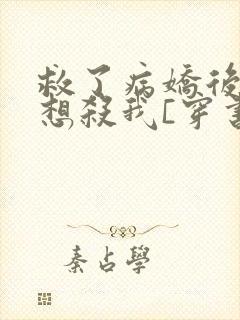 救了病嬌後
想殺我[穿書
秦占學